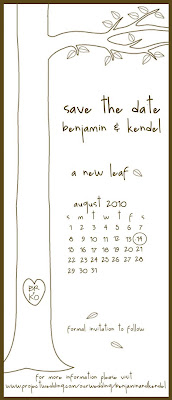 save the date
benjamin & kendel
a new leaf
august 2010
s m t w t f s
1 2 3 4 5 6 7
8 9 10 11 12 13 14
15 16 17 18 19 20 21
22 23 24 25 26 27 28
29 30 31
BR
KO
formal invitation to follow
for more information please visit
www.projectwedding.com/ourwedding/benjaminandkendel